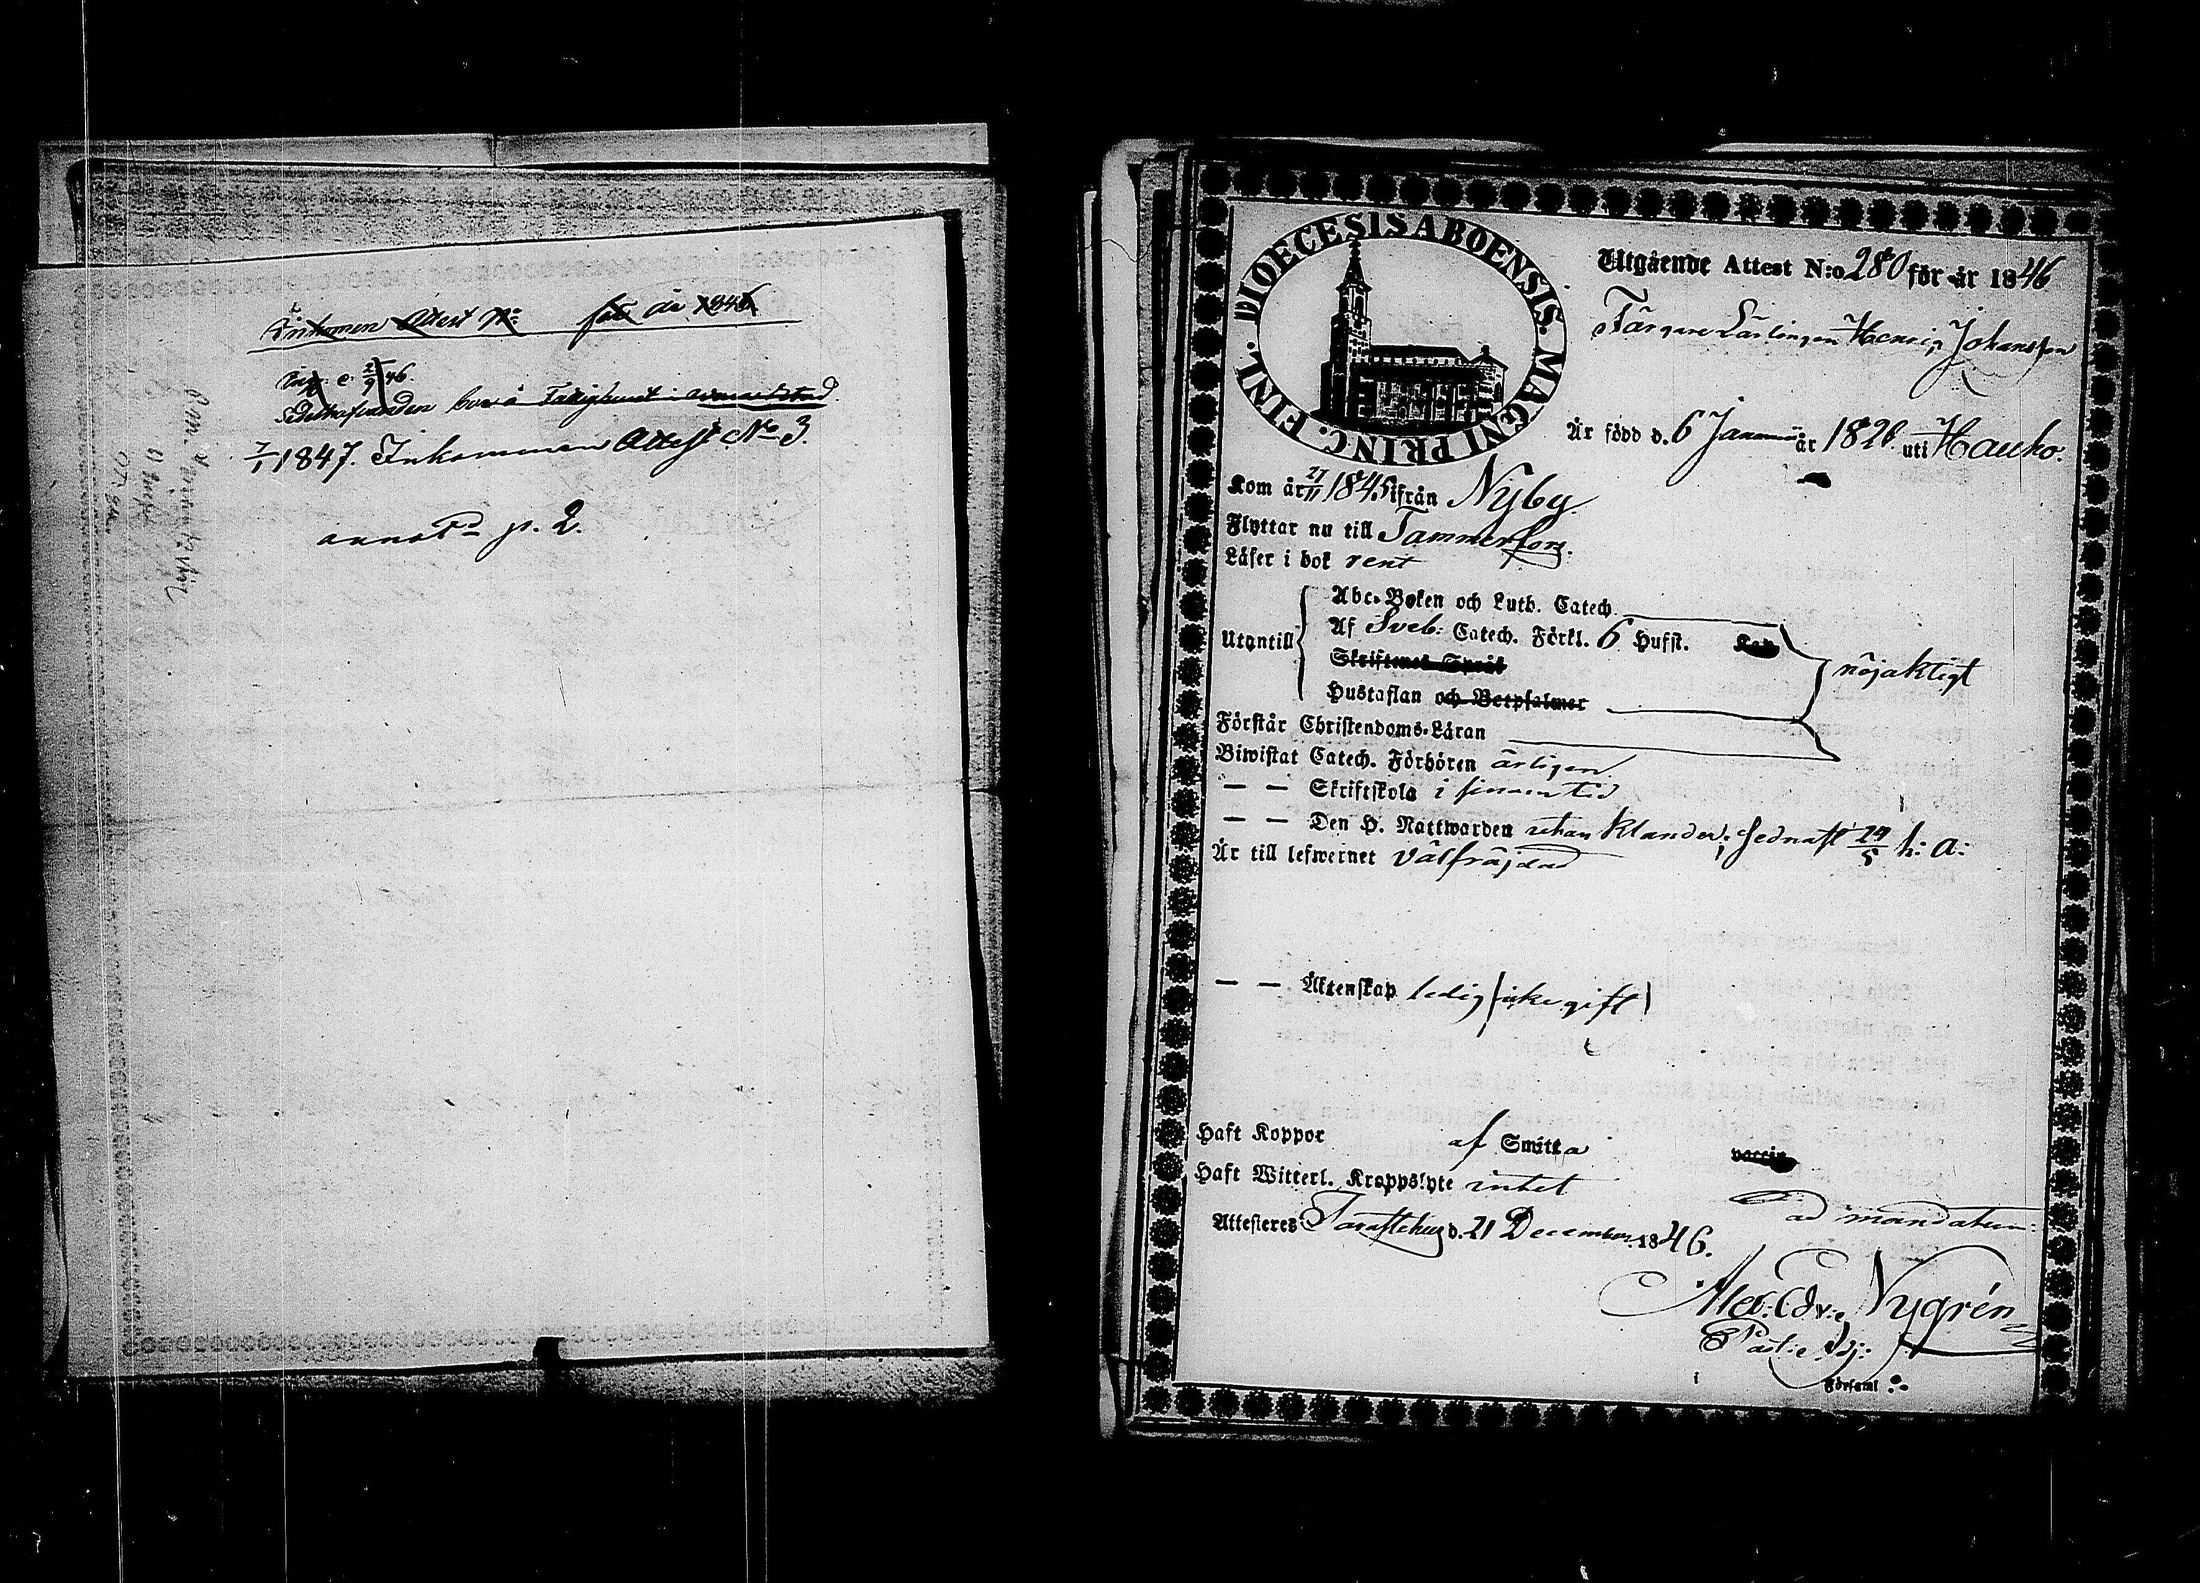 Inkommen Attest No för år 1846
Ink. e. 2/9 46.
7/1 1847. Inkommen Attest No 3.
annot. p. 2.
DIOECESIS ABOENSIS. MAGNI PRINC. FINL.
Utgående Attest N:o 280 för år 1846
Färgare Lärlingen Henric Johansson
Är född d. 6 Januarii år 1826 uti Hauho.
Kom år 27/11 1845 ifrån Nyby
Flyttar nu till Tammerfors.
Läser i bok rent
Utantill
Abc-Boken och Luth. Catech.
Af Sveb: Catech. Förkl. 6 Hufst. Cap
Skriftenes Språk
Hustaflan och Botpsalmer
nöjaktigt
Förstår Christendoms-Läran
Biwistat Catech. Förhören årligen
— — Skriftskola i sinom tid
— — Den H. Nattwarden utan klander; sednast 24/5 h: a:
Är till lefwernet välfräjdad
— — Äktenskap ledig (icke gift)
Haft Koppor af Smitta vaccin
Haft Witterl. Kroppslyte intet
Attesteres Tavastehus d. 21 December 1846.
ad mandatum:
Alex: Edv: Nygrén
Past: Adj:
Församl